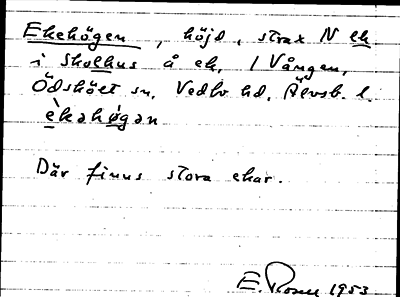 Ekehögen, höjd, strax N ek.
i Skolhus å ek. 1 Vången,
Ödskölt sn, Vedbo hd, Älvsb. l.
èkəhǿgən
Där finns stora ekar.
E. Rosell 1953